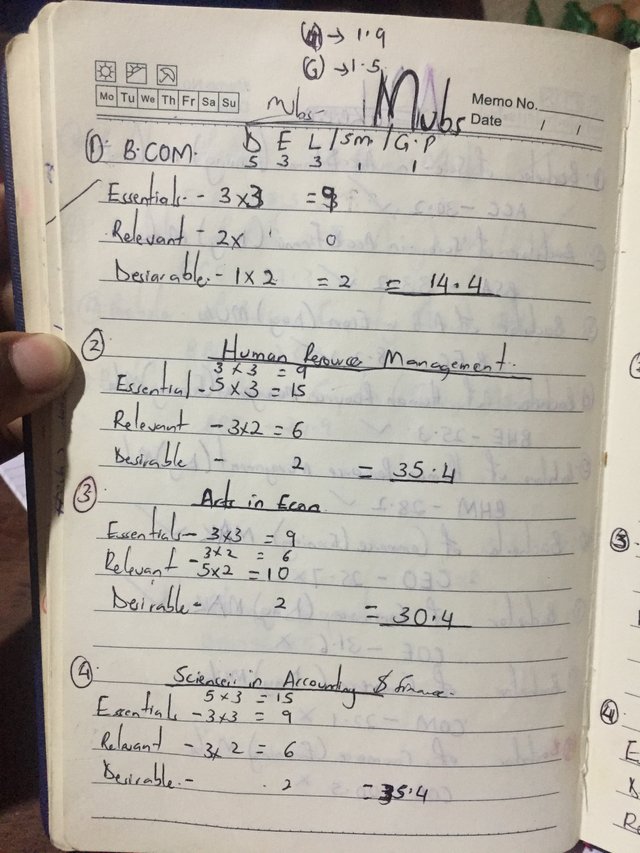 (A) → 1.9
(G) → 1.5
Mo Tu We Th Fr Sa Su
mubs- Mubs
Memo No.
Date / /
1) B.COM. D E L / Sm / G.P
5 3 3 1 1
Essentials. - 3 x 3 = 9
Relevant - 2x 0
Desiarable. - 1 x 2 = 2 = 14.4
2 Human Resource Management.
3 x 3 = 9
Essential - 5 x 3 = 15
Relevant - 3x2 = 6
Desirable - 2 = 35.4
3 Arts in Econ
Essentials - 3x3 = 9
3x2 = 6
Relevant - 5x2 = 10
Desirable - 2 = 30.4
4 Science in Accounting & finance.
5 x 3 = 15
Essentials - 3x3 = 9
Relevant - 3x2 = 6
Desirable. - 2 = 35.4
3
4
E
D
Re